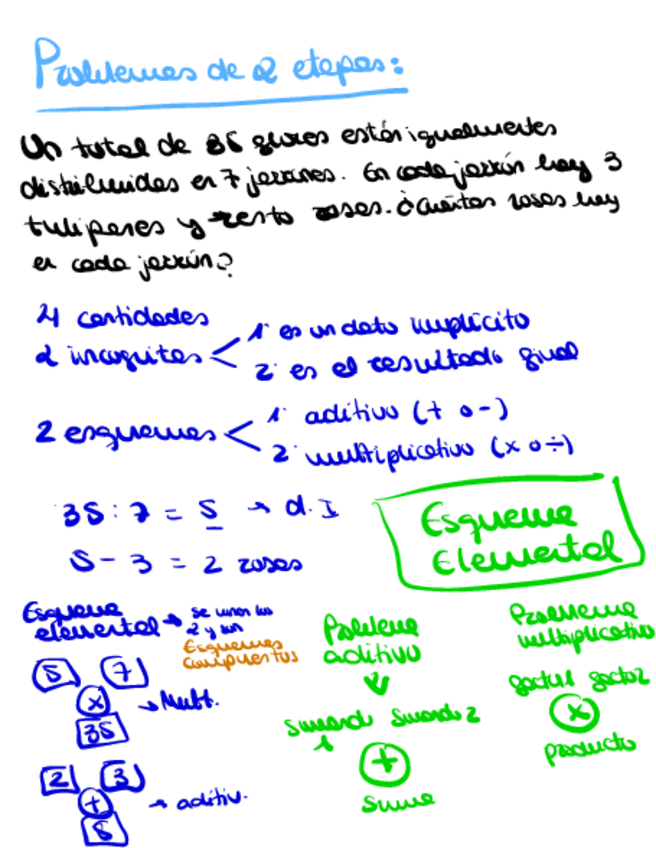 Problemas de 2 etapas:
Un total de 35 flores están igualmente
distribuidas en 7 jarrones. En cada jarrón hay 3
tulipanes y resto rosas. ¿Cuántas rosas hay
en cada jarrón?
4 cantidades
2 incognitas < 1· es un dato implícito
2· es el resultado final
2 esquemas < 1· aditivo (+ o -)
2· multiplicativo (x o ÷)
35 : 7 = 5 → d. I
5 - 3 = 2 rosas
Esquema
Elemental
Esquema
elemental → se unen los
2 y son
Esquemas
compuestos
5 7
x → Mult.
35
2 3
+ → aditiv.
5
Problema
aditivo
Sumando 1 Sumando 2
+
Suma
Problema
multiplicativo
factor1 factor2
x
producto